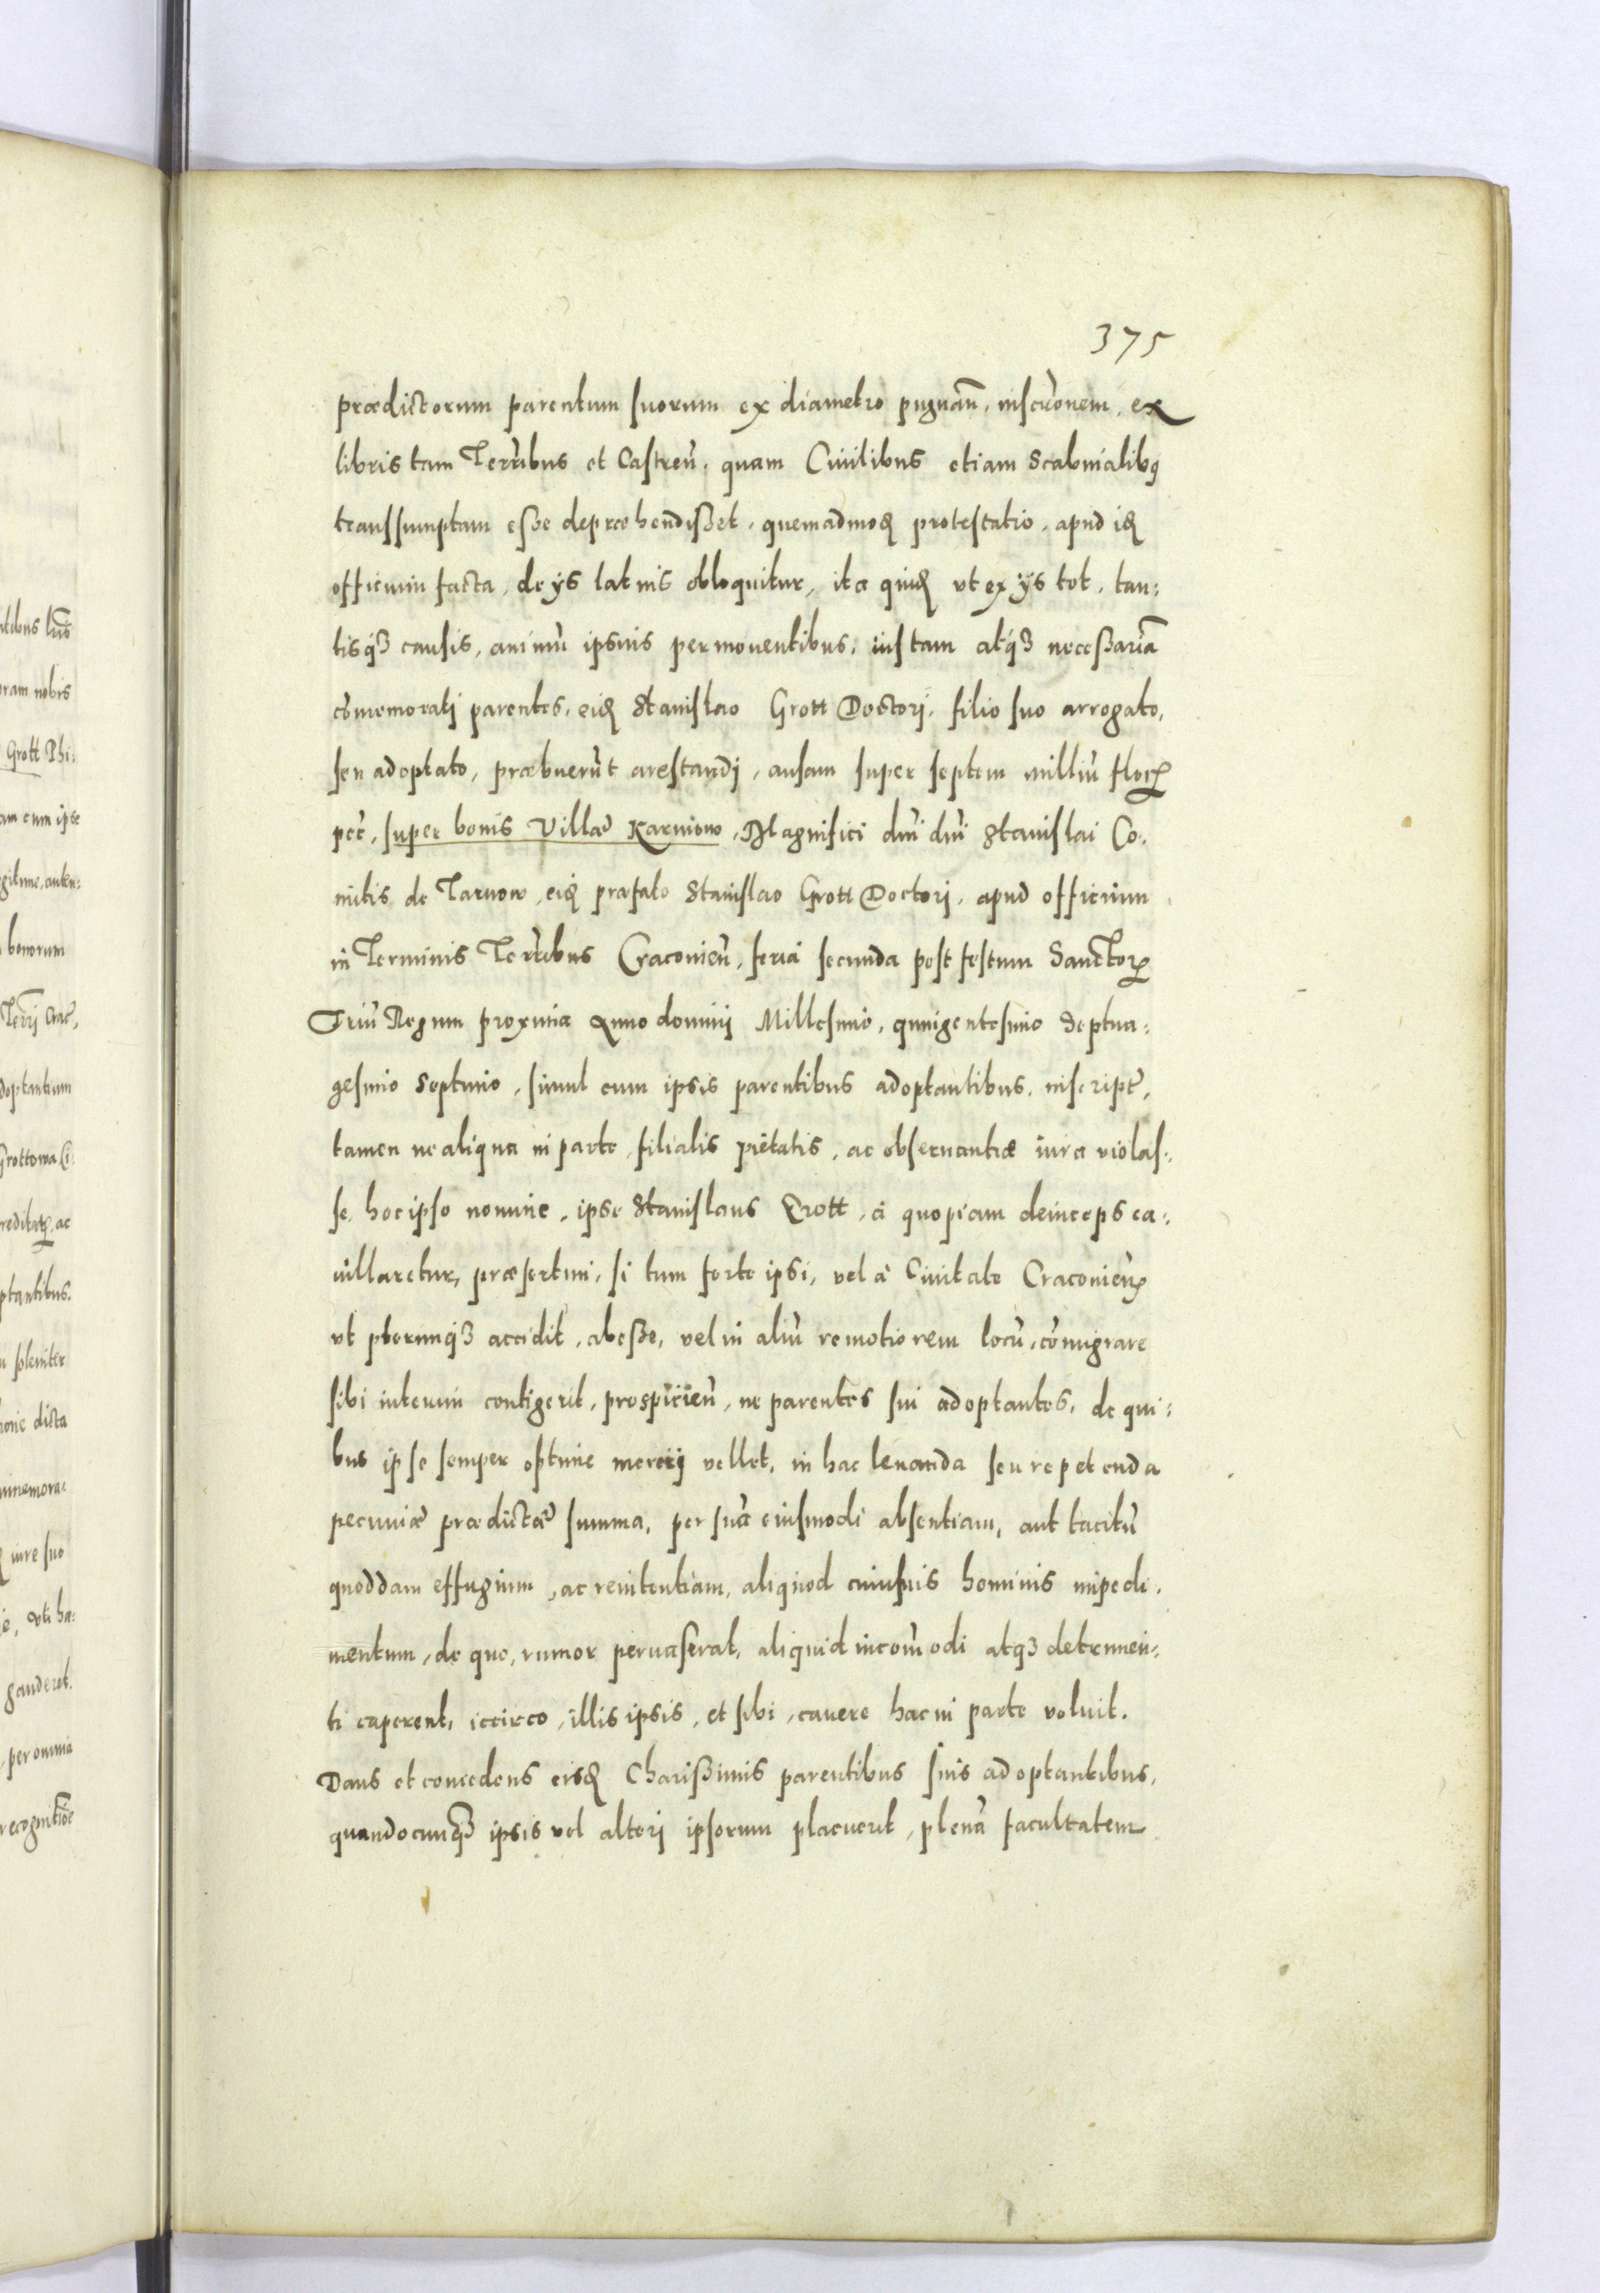 375
prædictorum parentum suorum ex diametro pugnañ, inscr̃onem, ex
libris tam Terr̃ibus et Castreñ. quam Ciuilibus etiam Scabinalibꝰ
transsumptam esse depræhendisset, quemadmoꝺ protestatio, apud iꝺ
officium facta, de ijs latius obloquitur, ita quiꝺ vt ex ijs tot, tan:
tisqꝫ causis, animũ ipsius permouentibus, iustam atqꝫ necessariã
cõmemorati parentes, eiꝺ Stanislao Grott Doctori, filio suo arrogato,
seu adoptato, præbuerũt arestandi, ausam super septem milliũ floꝝ
pec̃, super bonis Villæ Karniow, Magnifici dñi dñi Stanislai Co:
mitis de Tarnow, eiꝺ præfato Stanislao Grott Doctori, apud officium
in Terminis Terr̃ibus Cracouieñ, feria secunda post festum Sanctoꝝ
Triũ Regum proxima Anno domini Millesimo, quingentesimo Septua:
gesimo Septimo, simul cum ipsis parentibus adoptantibus, inscript̃,
tamen ne aliqua in parte, filialis pietatis, ac obseruantiæ iura violas:
se, hoc ipso nomine, ipse Stanislaus Grott, à quopiam deinceps ca:
uillaretur, præsertim, si tum forte ipsi, vel à Ciuitate Cracouieñ
vt plerunqꝫ accidit, abesse, vel in aliũ remotiorem locũ, cõmigrare
sibi interim contigerit, prospicieñ, ne parentes sui adoptantes, de qui:
bus ipse semper optime mereri vellet, in hac leuanda seu repetenda
pecuniæ prædictæ summa, per suã eiusmodi absentiam, aut tacitũ
quoddam effugium, ac renitentiam, aliquod cuiusuis hominis impedi:
mentum, de quo, rumor peruaserat, aliquid incom̃odi atqꝫ detrimen:
ti caperent, iccirco, illis ipsis, et sibi, cauere hac in parte voluit.
Dans et concedens eisꝺ Charissimis parentibus suis adoptantibus,
quandocunqꝫ ipsis vel alteri ipsorum placuerit, plenã facultatem